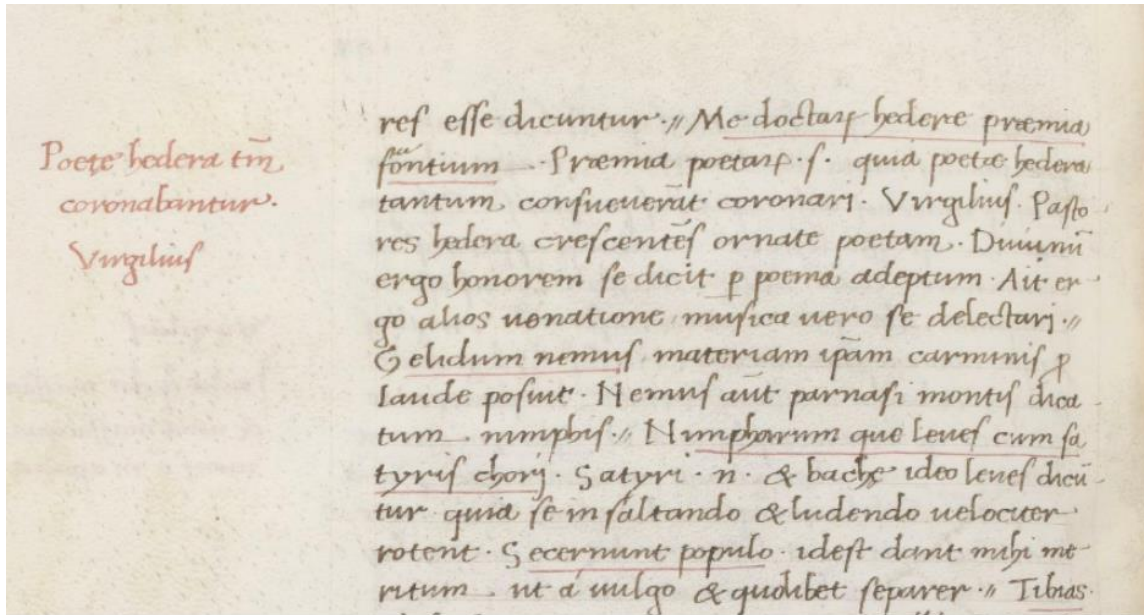 Poetę hedera tm̄
coronabantur.
Virgilius
res esse dicuntur.// Me doctaꝝ hedere præmia
frontium. Præmia poetaꝝ. s. quia poetæ hedera
tantum consueuerāt coronari. Virgilius. Pasto
res hedera crescentēs ornate poetam. Diuinū
ergo honorem se dicit ꝑ poema adeptum. Ait er-
go alios uenatione musica uero se delectari.//
Gelidum nemus materiam ip̄am carminis ꝓ
laude posuit. Nemus aūt parnasi montis dica
tum nimphis.// Nimpharum que leues cum sa
tyris chorj. Satyri. n. & bachę ideo leues dicū-
tur quia se in saltando & ludendo uelociter
rotent. Secernunt populo. idest dant mihi me-
ritum ut á uulgo & quolibet separer.// Tibias.